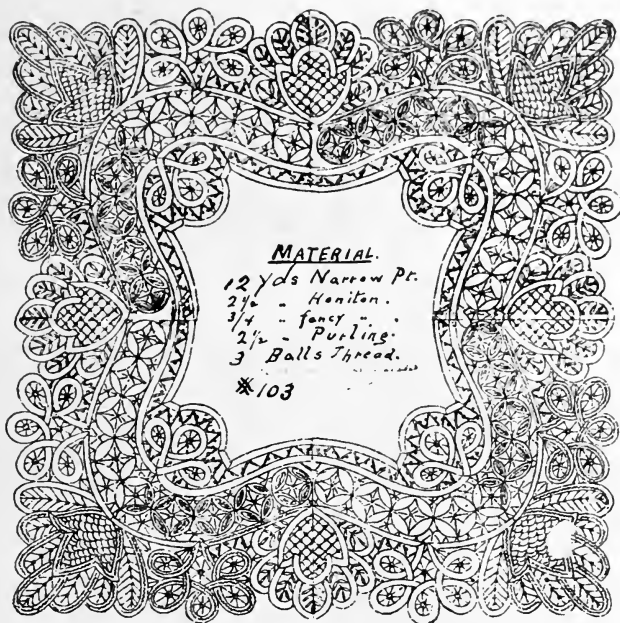 MATERIAL.
12 Yds Narrow Pt.
2½ " Honiton.
3/4 " fancy " .
2½ " Purling.
3 Balls Thread.
#103